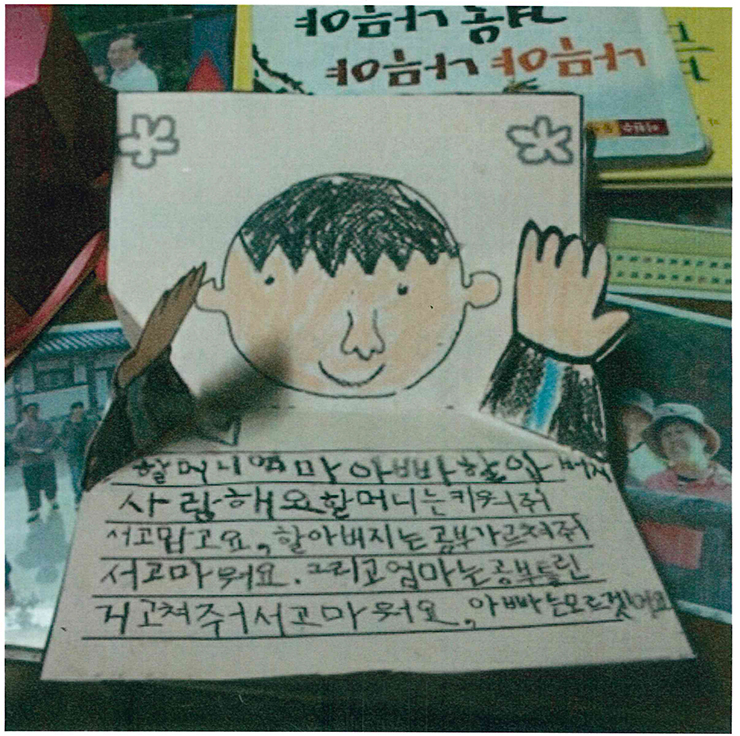 겨옹 나름야
나름야 나름야
할머니엄마 아빠할아버지
사랑해요할머니는키워줘
서고맙고요, 할아버지는공부가르쳐줘
서고마워요. 그리고엄마는공부틀린
거고쳐주어서고마워요, 아빠는모르겠어요